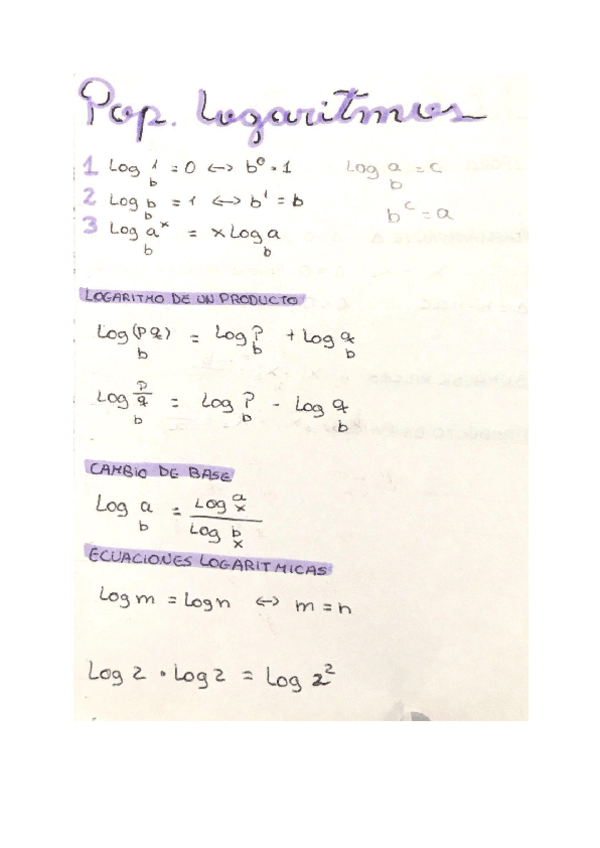 Pop. Logaritmos
1 Log_b 1 = 0 <-> b^0 = 1
Log_b a = c
2 Log_b b = 1 <-> b^1 = b
b^c = a
3 Log_b a^x = x Log_b a
LOGARITMO DE UN PRODUCTO
Log_b (P q) = Log_b P + Log_b q
Log_b P/q = Log_b P - Log_b q
CAMBIO DE BASE
Log_b a = Log_x a / Log_x b
ECUACIONES LOGARITMICAS
Log m = Log n <-> m = n
Log 2 · Log 2 = Log 2^2